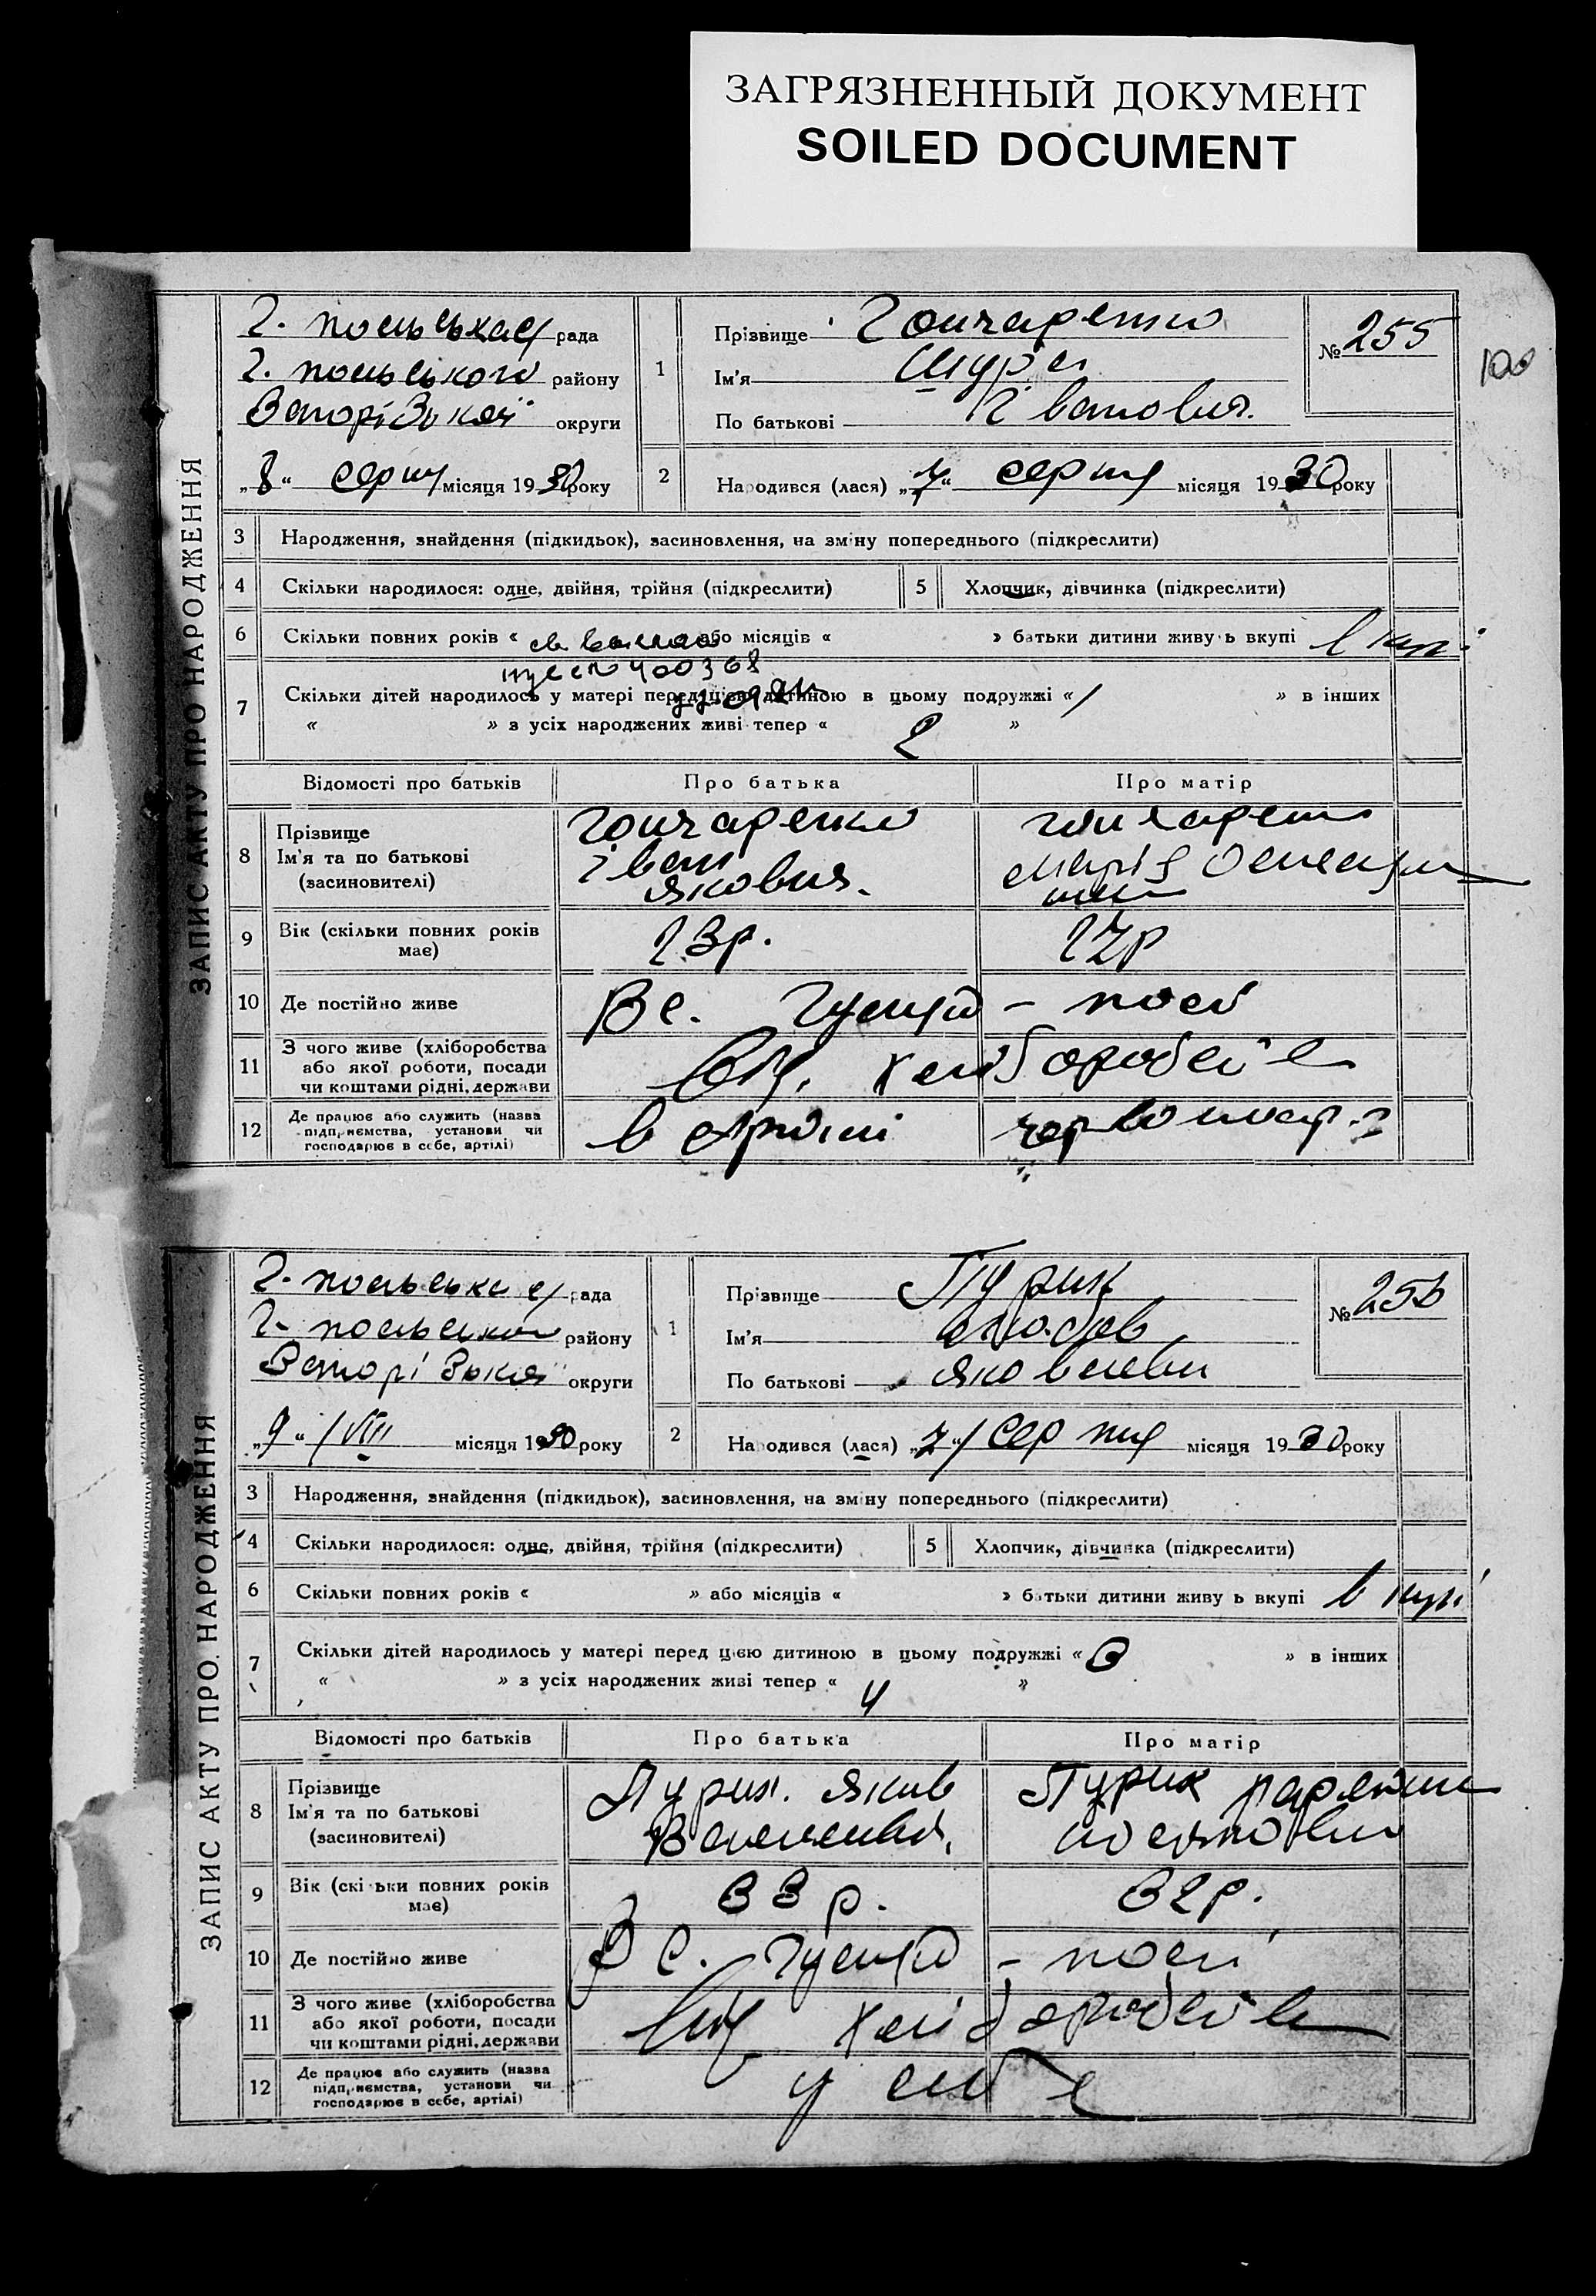 ЗАГРЯЗНЕННЫЙ ДОКУМЕНТ
SOILED DOCUMENT
100
ЗАПИС АКТУ ПРО НАРОДЖЕННЯ
Г. польська рада
Г. польського району
Запорізької округи
„8“ серпня місяця 1930 року
1
Прізвище Гончаренко
Ім'я Шура
По батькові Іванович.
№ 255
2
Народився (лася) „7“ серпня місяця 1930 року
3 Народження, знайдення (підкидьок), засиновлення, на зміну попереднього (підкреслити)
4 Скільки народилося: одне, двійня, трійня (підкреслити)
5 Хлопчик, дівчинка (підкреслити)
6 Скільки повних років « » або місяців « » батьки дитини живуть вкупі вкупі
400368
7 Скільки дітей народилось у матері перед цією дитиною в цьому подружжі «1 » в інших
« » з усіх народжених живі тепер « 2 »
Відомості про батьків Про батька Про матір
8 Прізвище
Ім'я та по батькові
(засиновителі)
Гончаренко
Іван
Якович.
Гончаренко
Марія
9 Вік (скільки повних років має)
23р.
22р
10 Де постійно живе
В с. Гуляй - полі
11 З чого живе (хліборобства
або якої роботи, посади
чи коштами рідні, держави
від хліборобства
12 Де працює або служить (назва
підприємства, установи чи
господарює в себе, артілі)
в артілі
ЗАПИС АКТУ ПРО НАРОДЖЕННЯ
Г. польська рада
Г. польського району
Запорізької округи
„9“ /VIII місяця 1930 року
1
Прізвище Пурик
Ім'я Любов
По батькові Яковлевна
№ 256
2
Народився (лася) „7“ серпня місяця 1930 року
3 Народження, знайдення (підкидьок), засиновлення, на зміну попереднього (підкреслити)
4 Скільки народилося: одне, двійня, трійня (підкреслити)
5 Хлопчик, дівчинка (підкреслити)
6 Скільки повних років « » або місяців « » батьки дитини живуть вкупі вкупі
7 Скільки дітей народилось у матері перед цією дитиною в цьому подружжі «3 » в інших
« » з усіх народжених живі тепер « 4 »
Відомості про батьків Про батька Про матір
8 Прізвище
Ім'я та по батькові
(засиновителі)
Пурик Яків
Пурик
9 Вік (скільки повних років має)
33 р.
32р.
10 Де постійно живе
В с. Гуляй - полі
11 З чого живе (хліборобства
або якої роботи, посади
чи коштами рідні, держави
від хліборобства
12 Де працює або служить (назва
підприємства, установи чи
господарює в себе, артілі)
у себе